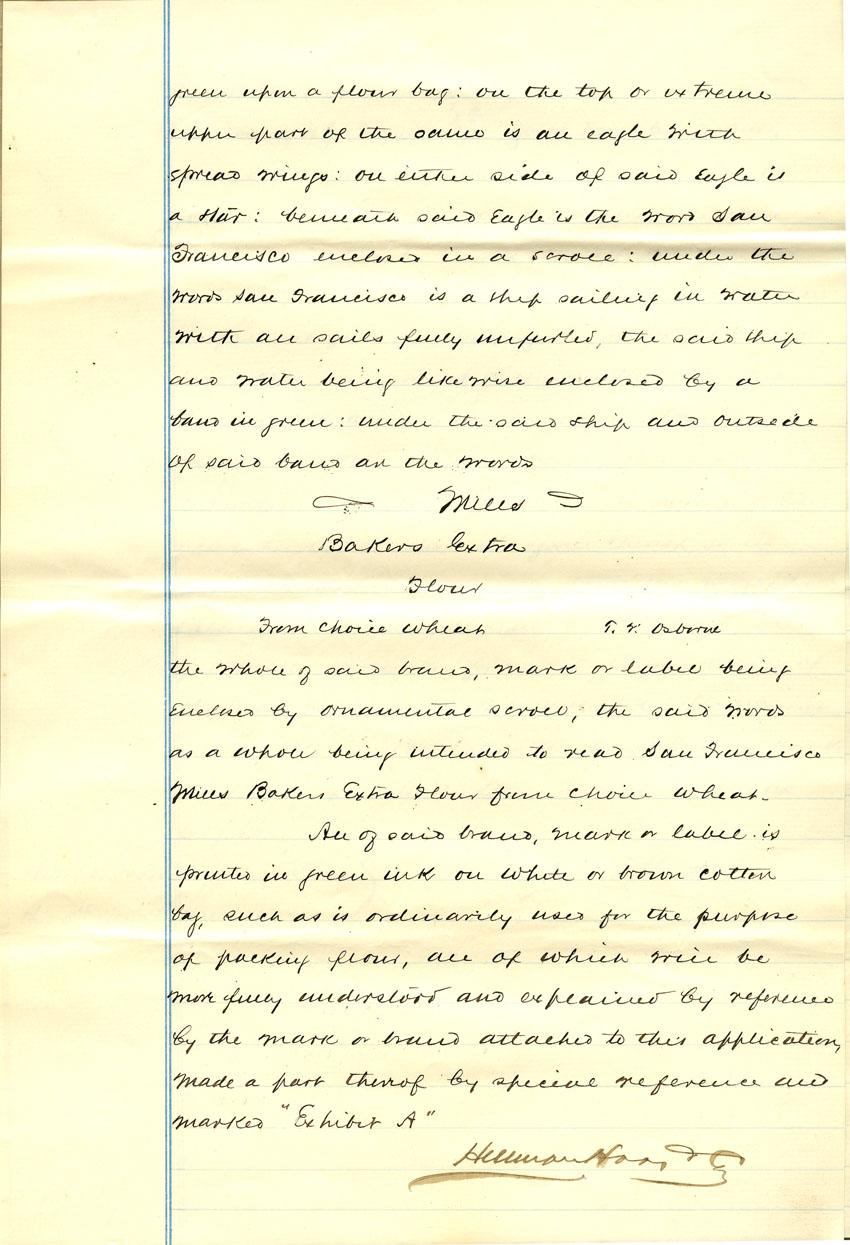 green upon a flour bag: on the top or extreme
upper part of the same is an eagle with
spread wings: on either side of said Eagle is
a star: beneath said Eagle is the word San
Francisco enclosed in a scroll: under the
words San Francisco is a ship sailing in water
with all sails fully unfurled, the said ship
and water being likewise enclosed by a
band in green: under the said ship and outside
of said band are the words
Mills
Bakers Extra
Flour
From choice wheat T. V. Osborne
the whole of said brand, mark or label being
enclosed by ornamental scroll, the said words
as a whole being intended to read San Francisco
Mills Bakers Extra Flour from choice wheat.
All of said brand, mark or label is
printed in green ink on white or brown cotton
bag, such as is ordinarily used for the purpose
of packing flour, all of which will be
more fully understood and explained by reference
by the mark or brand attached to this application,
made a part thereof by special reference and
marked "Exhibit A"
Hellman Haas & Co